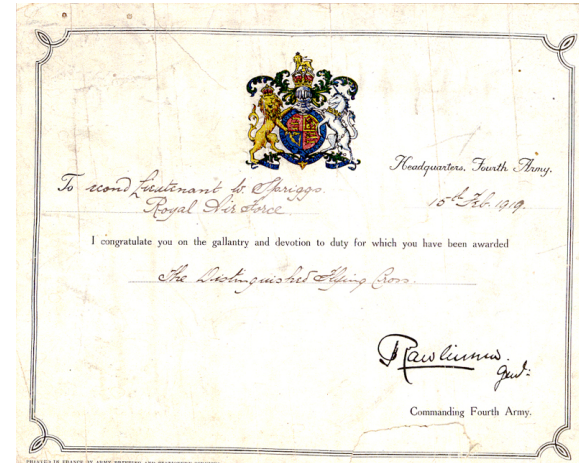 Headquarters, Fourth Army.
To econd Lieutenant W. Spriggs.
Royal Air Force
15th Feb. 1919.
I congratulate you on the gallantry and devotion to duty for which you have been awarded
The Distinguished Flying Cross.
Rawlinson.
Genl:
Commanding Fourth Army.
PRINTED IN FRANCE BY ARMY PRINTING AND STATIONERY